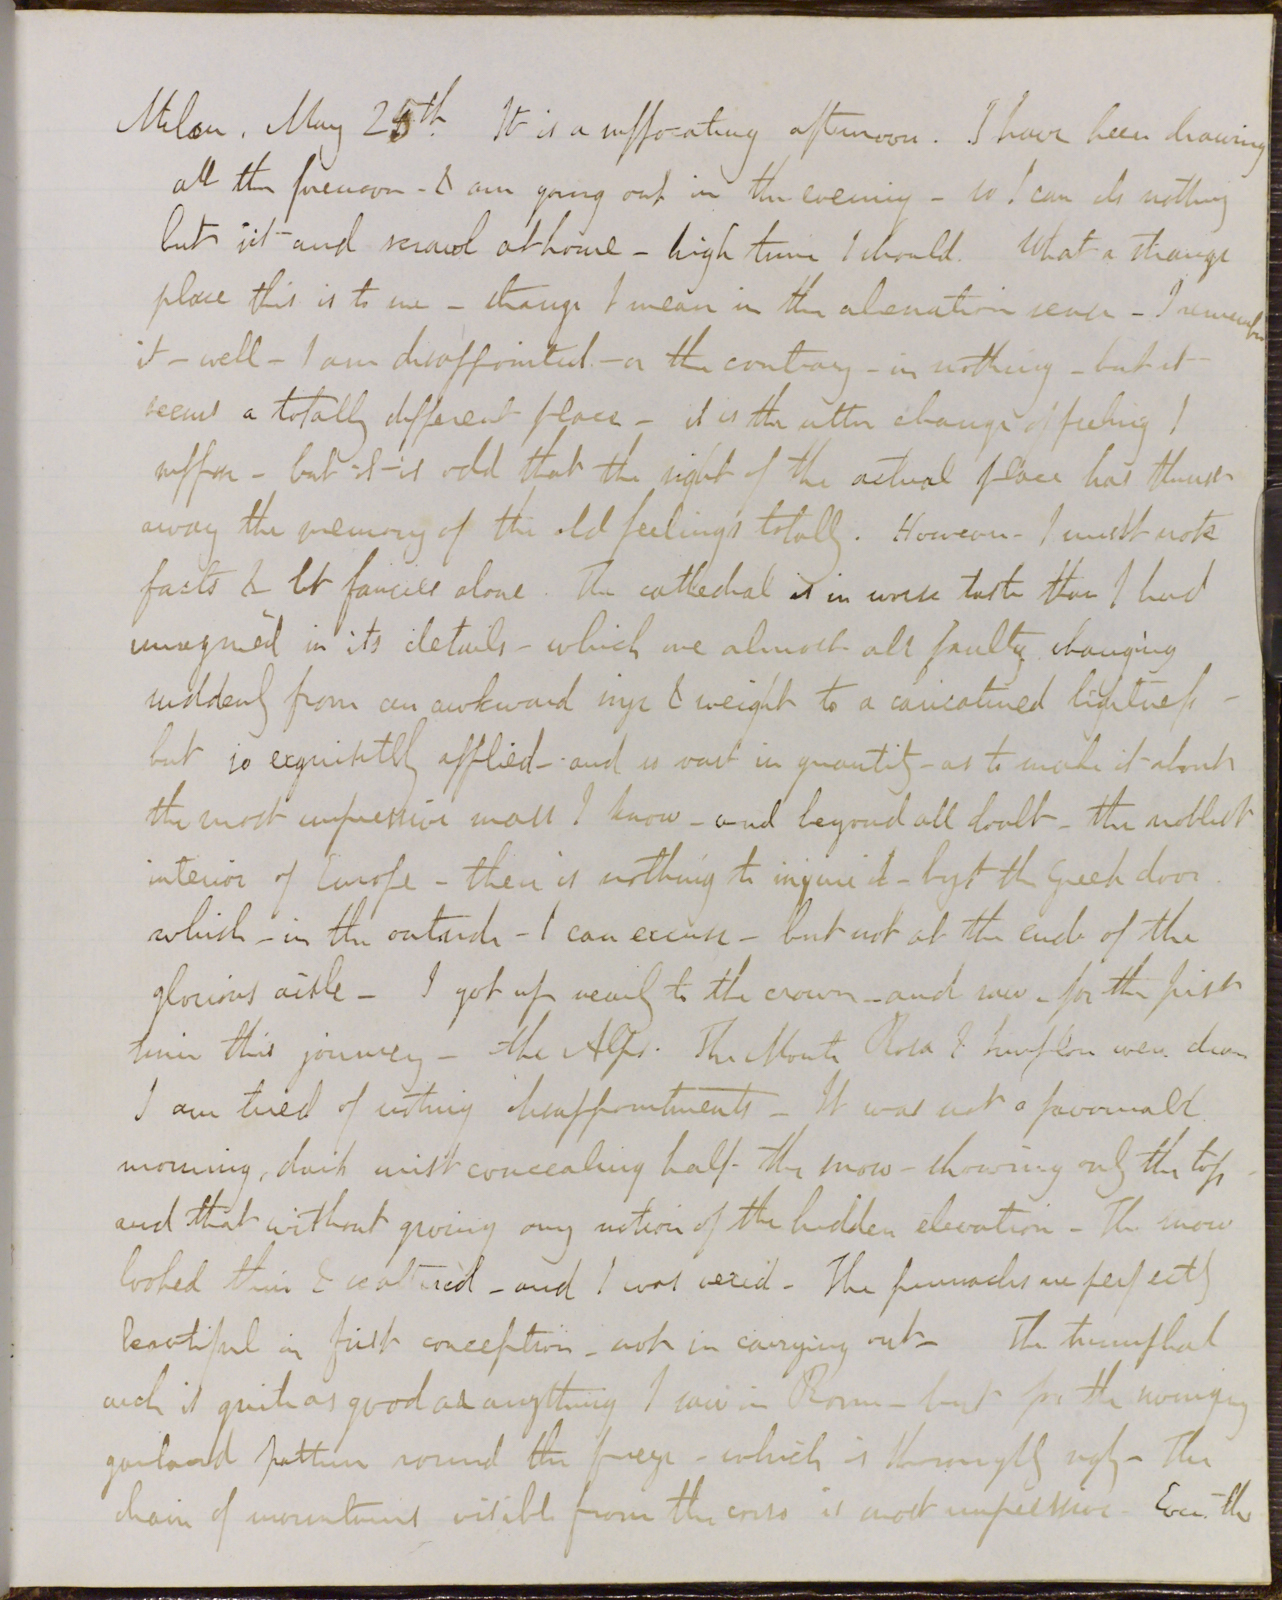 Milan. May 25th. It is a suffocating afternoon. I have been drawing
all the forenoon - & am going out in the evening - so I can do nothing
but sit and scrawl at home - high time I should. What a strange
place this is to me - strange I mean in the alienation sense - I remember
it - well - I am disappointed - on the contrary - in nothing - but it
seems a totally different place - it is the utter change of feeling I
suffer - but it is odd that the sight of the actual place has thrust
away the memory of the old feelings totally. However - I must note
facts & let fancies alone. The cathedral is in worse taste than I had
imagined in its details - which are almost all faulty changing
suddenly from an awkward size & weight to a caricatured lightness -
but so exquisitely applied - and so vast in quantity - as to make it about
the most impressive mass I know - and beyond all doubt - the noblest
interior of Europe - there is nothing to injure it - but the Greek door
which - in the outside - I can excuse - but not at the end of the
glorious aisle - I got up nearly to the crown - and saw - for the first
time this journey - the Alps. The Monte Rosa & Simplon were clear
I am tired of noting disappointments - It was not a favourable
morning, dark mist concealing half the snow - showing only the top -
and that without giving any notion of the hidden elevation - The snow
looked thin & scattered - and I was vexed - The pinnacles are perfectly
beautiful in first conception - not in carrying out - The triumphal
arch is quite as good as anything I saw in Rome - but for the swinging
garland pattern round the frieze - which is thoroughly ugly - The
chain of mountains visible from the corso is most impressive - Even the